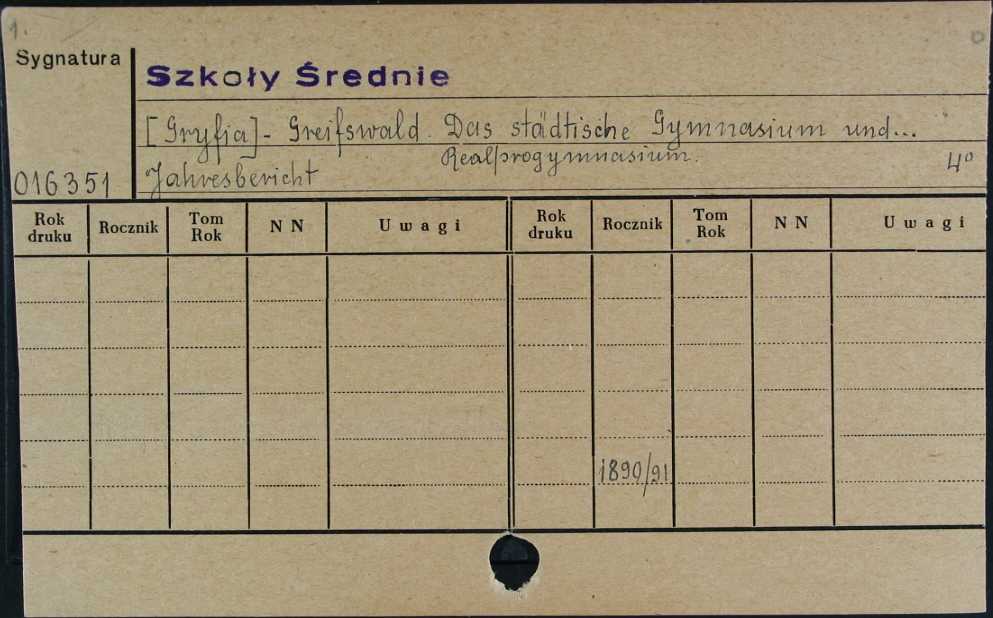 1.
Sygnatura
Szkoły Średnie
[Gryfja] - Greifswald. Das städtische Gymnasium und...
Realprogymnasium.
4°
016351
Jahresbericht
Rok druku Rocznik Tom Rok N N Uwagi Rok druku Rocznik Tom Rok N N Uwagi
1890/91